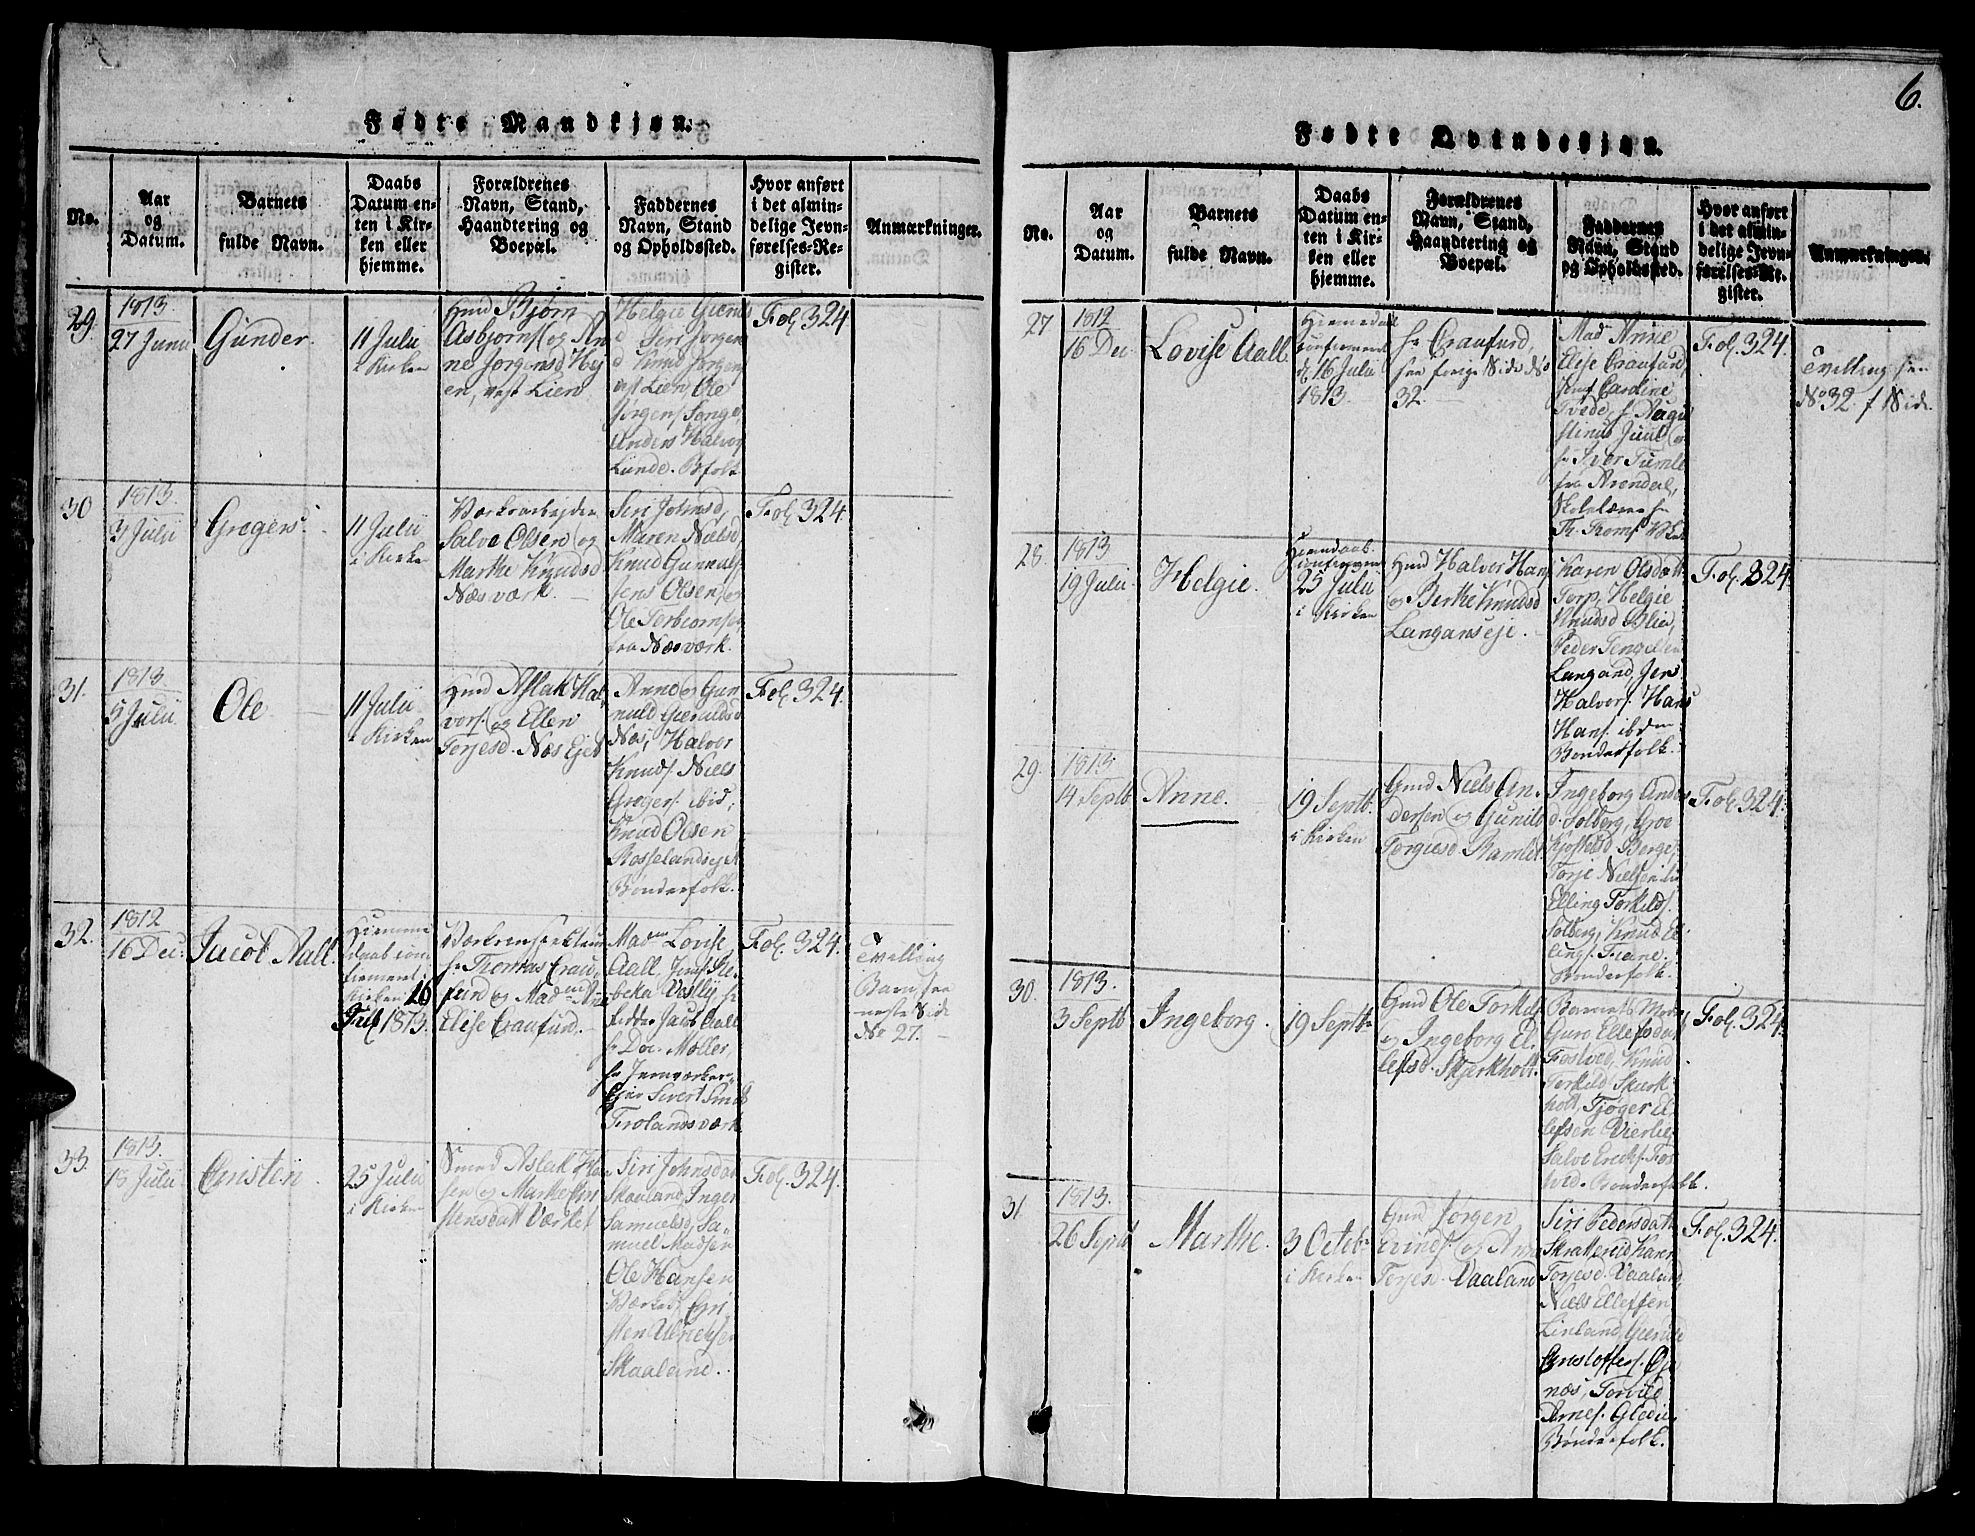 6.
Fødte Mandkjøn.
No.
Aar
og
Datum.
Barnets
fulde Navn.
Daabs
Datum en-
ten i Kir-
ken eller
hjemme.
Forældrenes
Navn, Stand,
Haandtering og
Boepæl.
Faddernes
Navn, Stand
og Opholdssted.
Hvor anført
i det almin-
delige Jevn-
førelses-Re-
gister.
Anmærkninger.
29.
1813.
27 Junii
Gunder.
11 Julii
i Kirken
Gmd Bjørn
Asbjørns. og An
ne Jørgensd
en, vest Lien
Helgie
Siri Jørgen
d Knud Jørgens
vest Lien, Ole
Jørgens Songe,
Anders Halvors
Lunde. Bfolk
Fol. 324
30
1813.
3 Julii
Gregers.
11 Julii
i Kirken
Værksarbejder
Salve Olsen og
Marthe Knudsd
Næsværk.
Siri Johnsd,
Maren Nielsd,
Knud Gunnuls.
Jens Olsen, og
Ole Torbiørnsen
fra Næsværk.
Fol. 324.
31.
1813.
5 Julii
Ole
11 Julii
i Kirken
Gmd Aslak Hal
vors. og Ellen
Torjesd. Næs Ejet
Anne og Gun
nuld
Næs, Halvor
Knuds. Niels
Gregers. ibid,
Knud Olsen
Rosselandsejet
Bønderfolk.
Fol. 324.
32.
1812
16 Dec.
Jacob Aall.
Hiemme
daab con
firmeret i
Kirken 16
Juli 1813.
Værksinspekteur
Hr Thomas Crau
furd og Madme An
Elise Craufurd.
Madme Lovise
Aall, Jomf. Re
beka Vesly, Hr
Ridder Jacob Aall
Hr Doc. Møller,
Hr Jernværks-
Ejer Sivert Smidt
Frolandsværk
Fol. 324.
Tvilling
Barn see
næste Side
No 27.
33.
1813.
18 Julii
Christen
25 Julii
i Kirken
Smed Aslak Han
sen og Marthe Chri
stensdatt Værket
Siri Johnsdatt
Skaaland, Inger
Samuelsd, Sa-
muel Madsen
Ole Hansen
Værket, Chri
sten Ulrichsen
Skaaland.
Fol. 324.
Fødte Qvindekjøn.
No.
Aar
og
Datum.
Barnets
fulde Navn.
Daabs
Datum en-
ten i Kir-
ken eller
hjemme.
Forældrenes
Navn, Stand,
Haandtering og
Boepæl.
Faddernes
Navn, Stand
og Opholdssted.
Hvor anført
i det almin-
delige Jevn-
førelses-Re-
gister.
Anmærkninger.
27
1812
16 Dec.
Lovise Aall.
Hiemmedaab
confirmeret
d. 16 Julii
1813.
Hr Craufurd,
see forige Side No
32.
Mad Anne
Elise Craufurd,
Jomf Cardine
Tvede, Hr Augu
stinus Juul og
Hr Iver Tumle
fra Arendal,
Skolelærer Hr
Th. Roms Værket
Fol. 324.
Tvilling see
No 32 f Side.
28.
1813
19 Julii
Helgie.
Hiemdaab.
confirmeret
25 Julii
i Kirken
Gmd Halvor Hans
og Birthe Knudsd
Langangseje.
Karen Olsdatt
Torp, Helgie
Knudsd Blie,
Peder
Langand, Jen
Halvors. Hans
Hans. ibdm
Bønderfolk.
Fol. 324.
29.
1813.
14 Septb.
Anne.
19 Septb.
i Kirken
Gmd Niels An-
dersen og Gunild
Torgiesd Ramlet.
Ingeborg Anders
d. Solberg, Groe
Kjøstelsd Berge,
Torje Nielsen
Elling Torkilds.
Solberg, Knud El
lings. Fiane.
Bønderfolk.
Fol. 324.
30.
1813.
3 Septb
Ingeborg.
19 Septb.
Gmd Ole Torkels
og Ingeborg El
lefsd. Skjærkholt.
Barnets Moder
Guro Ellefsdatt
Fostved, Knud
Torkild. Skærk
holt, Tjøger El
lefsen Vierlie,
Salve Ericks. Fos
tved. Bønderfolk.
Fol. 324.
31
1813.
26 Septb
Marthe.
3 Octob.
i Kirken
Gmd Jørgen
Evinds. og Anne
Torjesd. Vaaland
Siri Pedersdatt
Skrattereid, Karen
Torjesd. Vaaland,
Niels Ellefsen
Linland,
Christoffers.
næs, Torvild
Arnes. Glødie,
Bønderfolk.
Fol. 324.